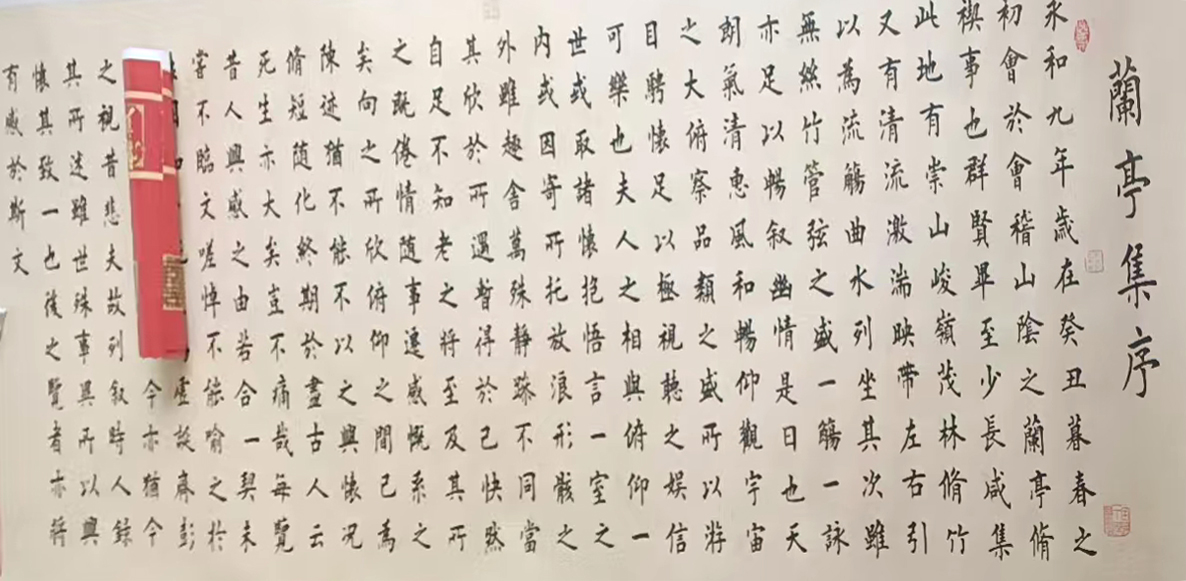 蘭亭集序
永和九年歲在癸丑暮春之
初會於會稽山陰之蘭亭脩
禊事也群賢畢至少長咸集
此地有崇山峻嶺茂林脩竹
又有清流激湍映帶左右引
以為流觴曲水列坐其次雖
無絲竹管弦之盛一觴一詠
亦足以暢叙幽情是日也天
朗氣清惠風和暢仰觀宇宙
之大俯察品類之盛所以游
目騁懷足以極視聽之娛信
可樂也夫人之相與俯仰一
世或取諸懷抱悟言一室之
內或因寄所托放浪形骸之
外雖趣舍萬殊靜躁不同當
其欣於所遇暫得於己快然
自足不知老之將至及其所
之既倦情随事遷感慨系之
矣向之所欣俯仰之間已為
陳迹猶不能不以之興懷況
脩短随化終期於盡古人云
死生亦大矣豈不痛哉每覽
昔人興感之由若合一契未
嘗不臨文嗟悼不能喻之於
虛誕齊彭
今亦猶今
之視昔悲夫故列叙時人錄
其所述雖世殊事異所以興
懷其致一也後之覽者亦將
有感於斯文